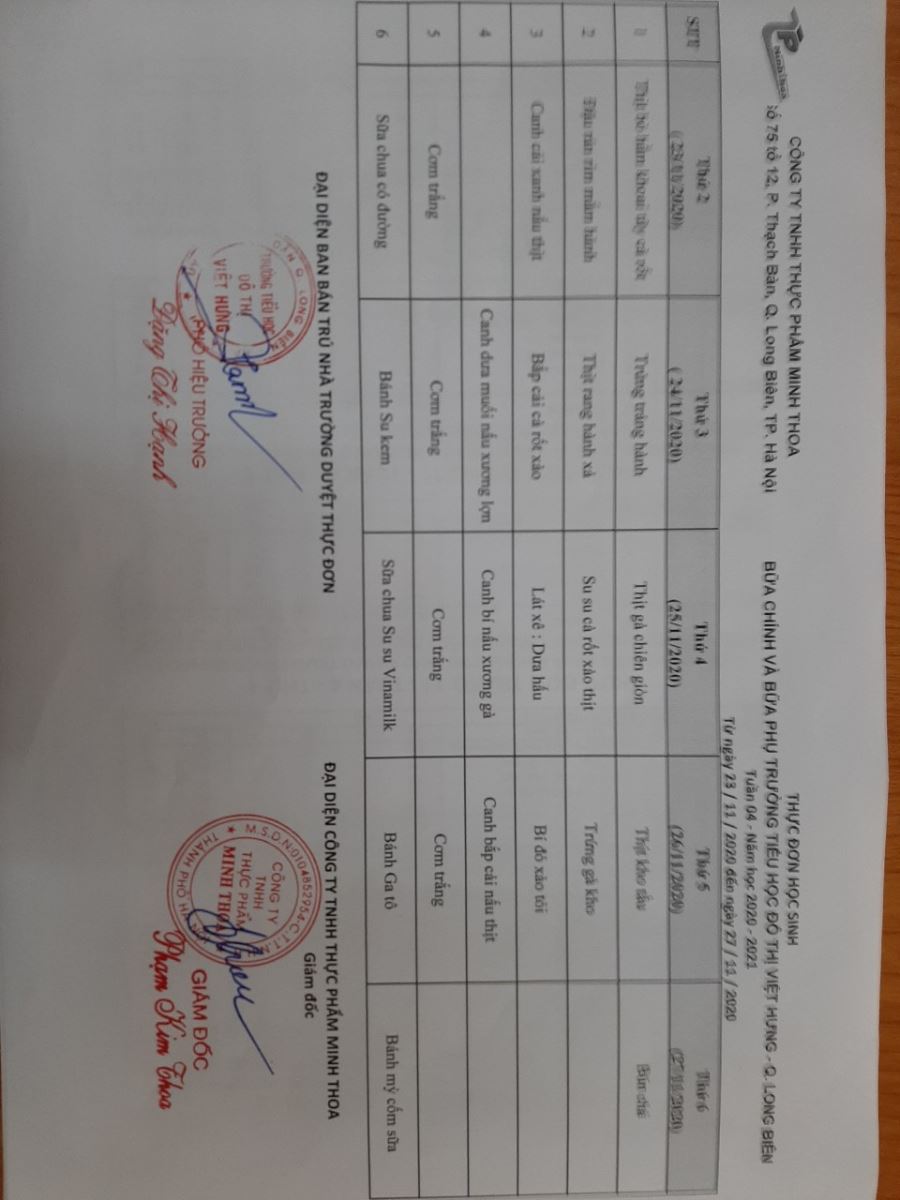 CÔNG TY TNHH THỰC PHẨM MINH THOA
Số 75 tổ 12, P. Thạch Bàn, Q. Long Biên, TP. Hà Nội
THỰC ĐƠN HỌC SINH
BỮA CHÍNH VÀ BỮA PHỤ TRƯỜNG TIỂU HỌC ĐÔ THỊ VIỆT HƯNG - Q. LONG BIÊN
Tuần 04 - Năm học 2020 - 2021
Từ ngày 23 / 11 / 2020 đến ngày 27 / 11 / 2020
STT Thứ 2 (23/11/2020) Thứ 3 (24/11/2020) Thứ 4 (25/11/2020) Thứ 5 (26/11/2020) Thứ 6 (27/11/2020)
1 Thịt bò hầm khoai tây cà rốt Trứng tráng hành Thịt gà chiên giòn Thịt kho tàu Bún chả
2 Đậu rán rim mắm hành Thịt rang hành xả Su su cà rốt xào thịt Trứng gà kho
3 Canh cải xanh nấu thịt Bắp cải cà rốt xào Lát xê : Dưa hấu Bí đỏ xào tỏi
4 Canh dưa muối nấu xương lợn Canh bí nấu xương gà Canh bắp cải nấu thịt
5 Cơm trắng Cơm trắng Cơm trắng Cơm trắng
6 Sữa chua có đường Bánh Su kem Sữa chua Su su Vinamilk Bánh Ga tô Bánh mỳ cốm sữa
ĐẠI DIỆN BAN BÁN TRÚ NHÀ TRƯỜNG DUYỆT THỰC ĐƠN
TRƯỜNG TIỂU HỌC
ĐÔ THỊ
VIỆT HƯNG
Q. LONG BIÊN
PHÓ HIỆU TRƯỞNG
Đặng Thị Hạnh
ĐẠI DIỆN CÔNG TY TNHH THỰC PHẨM MINH THOA
Giám đốc
CÔNG TY
TNHH
THỰC PHẨM
MINH THOA
GIÁM ĐỐC
Phạm Kim Thoa